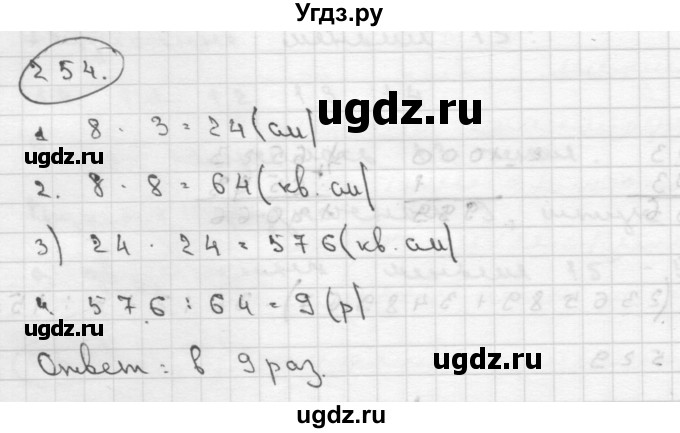 Угдз.ру
254.
1 8 · 3 = 24 (см)
2. 8 · 8 = 64 (кв. см)
3) 24 · 24 = 576 (кв. см)
4. 576 : 64 = 9 (р)
Ответ: в 9 раз.
ugdz.ru
ugdz.ru
ugdz.ru
ugdz.ru
ugdz.ru
ugdz.ru
ugdz.ru
ugdz.ru